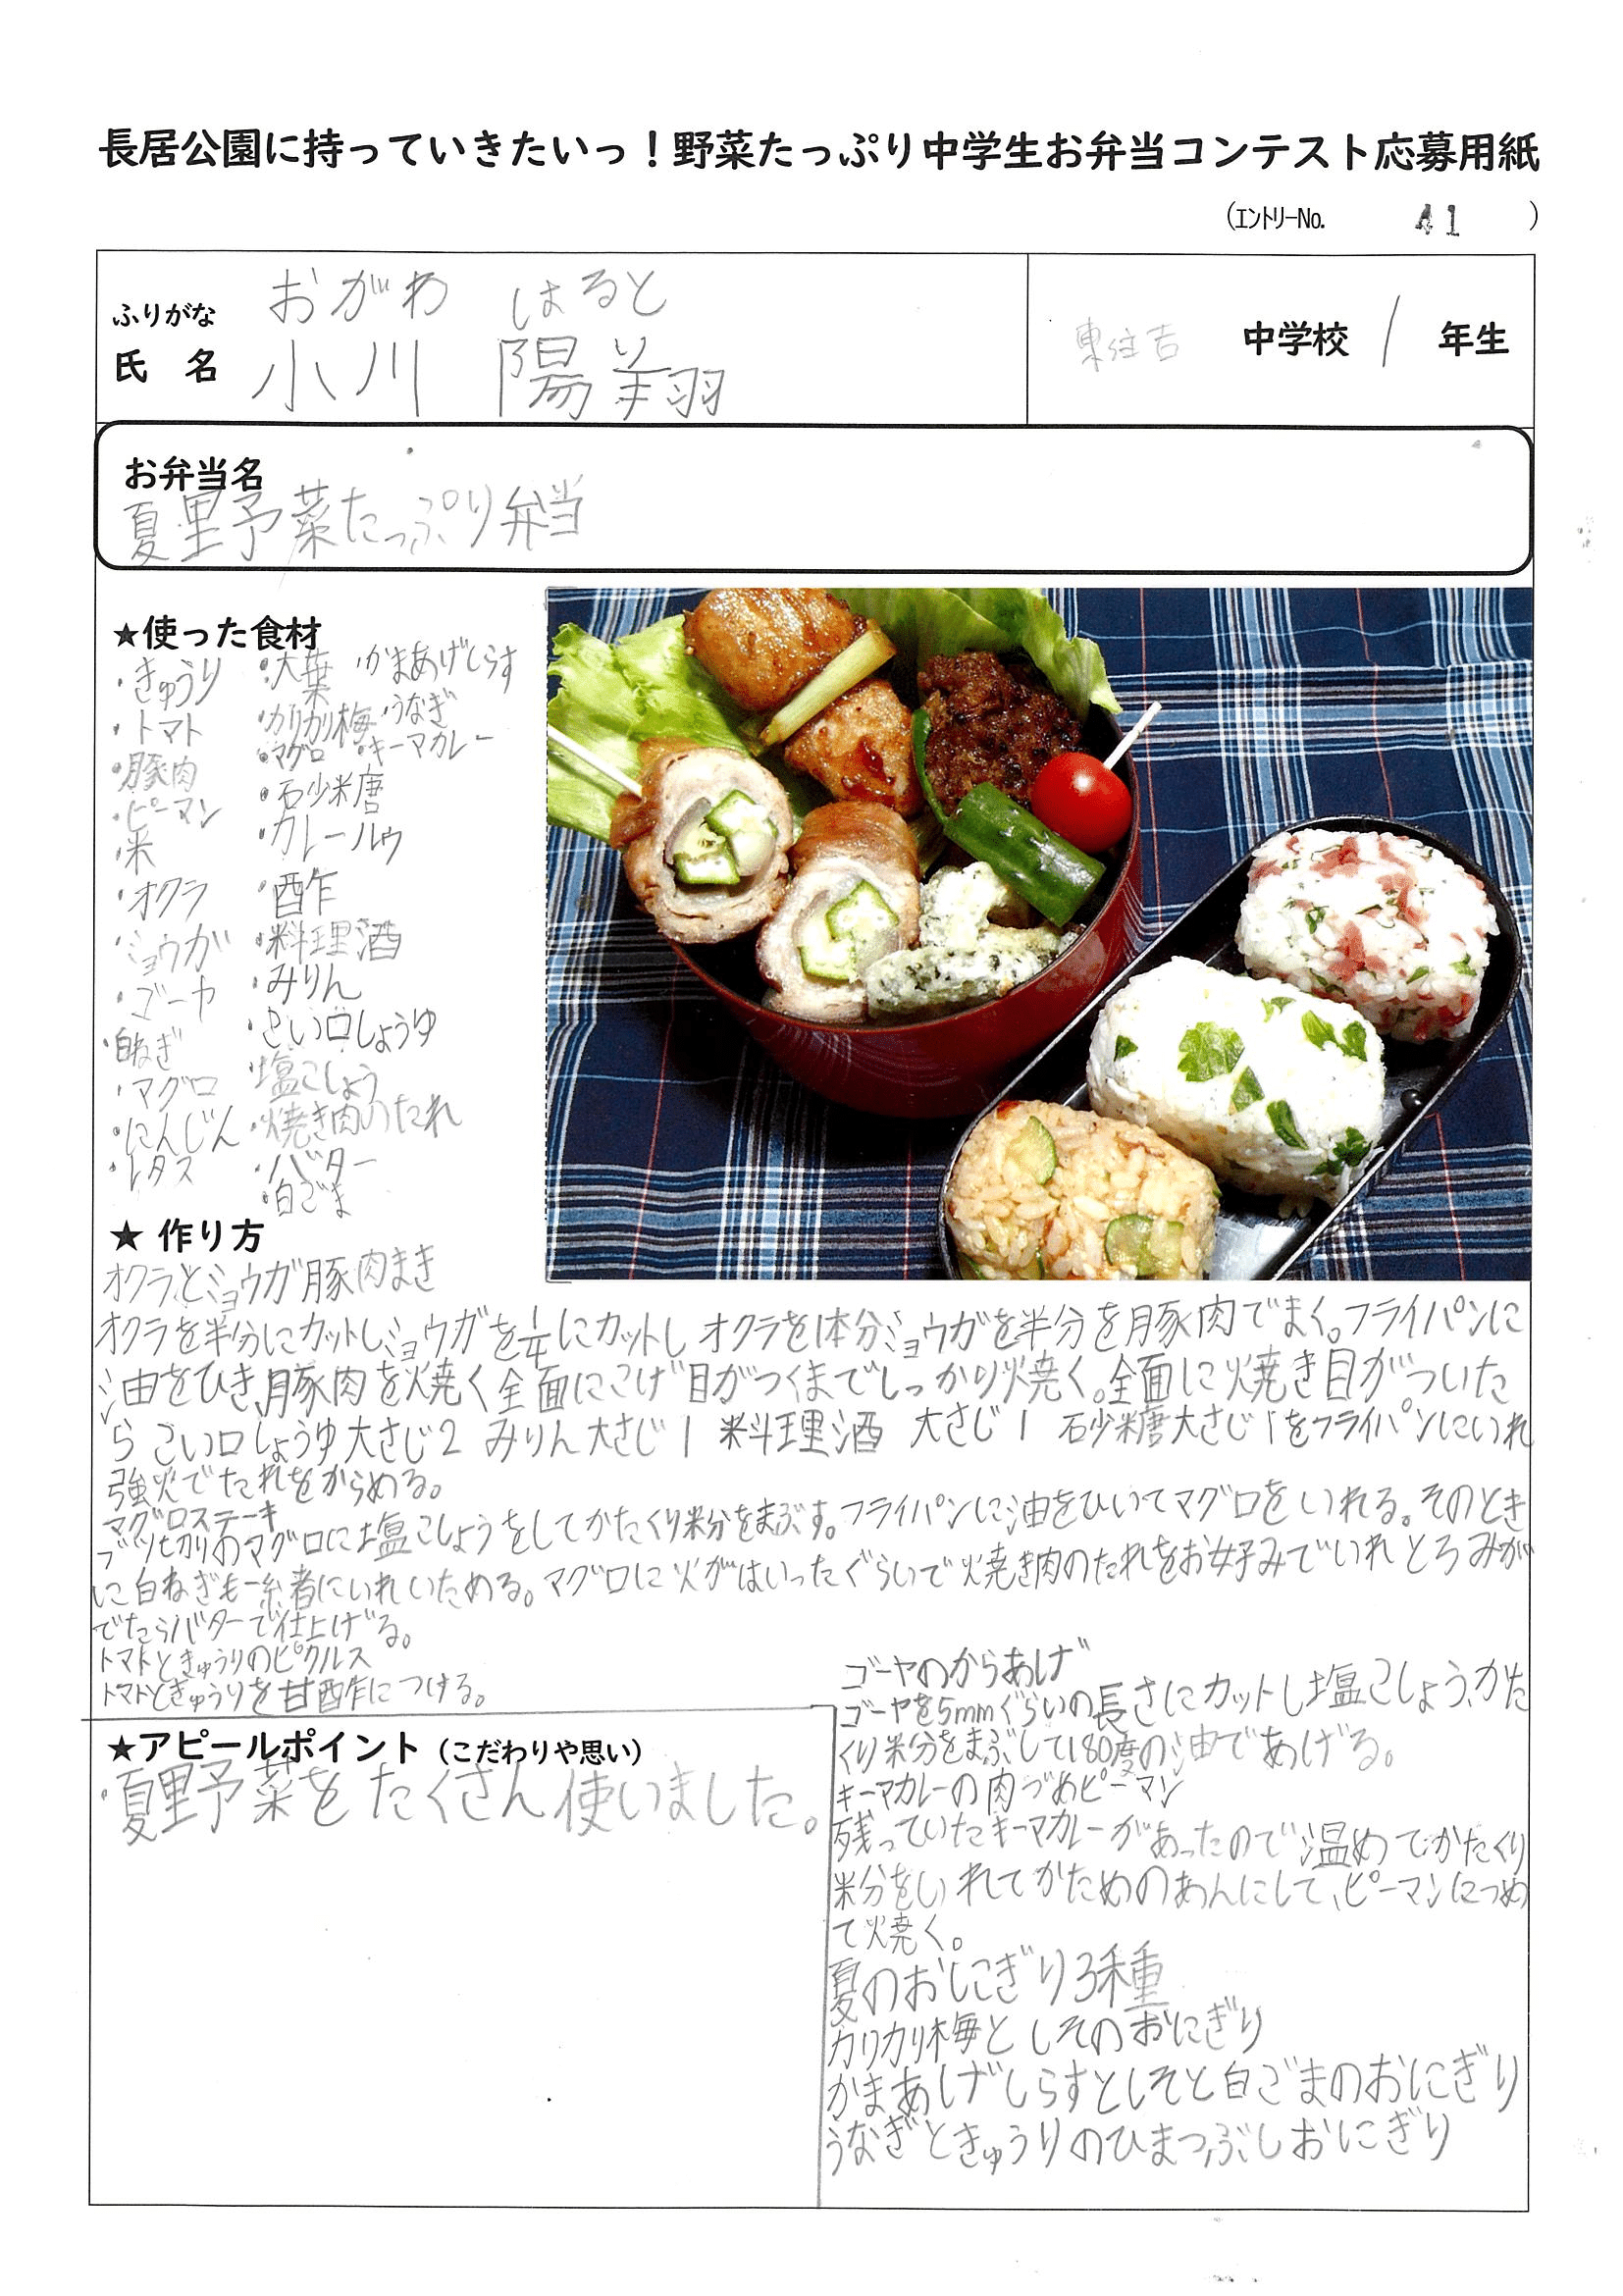 長居公園に持っていきたいっ！野菜たっぷり中学生お弁当コンテスト応募用紙
（エントリーNo. 41 ）
ふりがな おがわ はると
氏 名 小川 陽翔
東住吉 中学校 1 年生
お弁当名
夏野菜たっぷり弁当
★使った食材
・きゅうり ・大葉 ・かまあげしらす
・トマト ・カリカリ梅 ・うなぎ
・豚肉 ・マグロ ・キーマカレー
・ピーマン ・砂糖
・米 ・カレールゥ
・オクラ ・酢
・ミョウガ ・料理酒
・ゴーヤ ・みりん
・白ねぎ ・こい口しょうゆ
・マグロ ・塩こしょう
・にんじん ・焼き肉のたれ
・レタス ・バター
・白ごま
★ 作り方
オクラとミョウガ豚肉まき
オクラを半分にカットしミョウガを にカットし オクラを1本分ミョウガを半分を豚肉でまく。フライパンに
油をひき、豚肉を焼く全面にこげ目がつくまでしっかり焼く。全面に焼き目がついた
ら こい口しょうゆ大さじ2 みりん大さじ1 料理酒 大さじ1 砂糖大さじ1をフライパンにいれ
強火でたれをからめる。
マグロステーキ
ブツ切りのマグロに塩こしょうをしてかたくり粉をまぶす。フライパンに油をひいてマグロをいれる。そのとき
に白ねぎも一緒にいれいためる。マグロに火がはいったぐらいで焼き肉のたれをお好みでいれ とろみが
でたらバターで仕上げる。
トマトときゅうりのピクルス
トマトときゅうりを甘酢につける。
ゴーヤのからあげ
ゴーヤを5mmぐらいの長さにカットし塩こしょう、かた
くり粉をまぶして180度の油であげる。
キーマカレーの肉づめピーマン
残っていたキーマカレーがあったので温めてかたくり
粉をいれてかためのあんにして、ピーマンにつめ
て焼く。
夏のおにぎり3種
カリカリ梅としそのおにぎり
かまあげしらすとしそと白ごまのおにぎり
うなぎときゅうりのひまつぶしおにぎり
★アピールポイント（こだわりや思い）
・夏野菜をたくさん使いました。